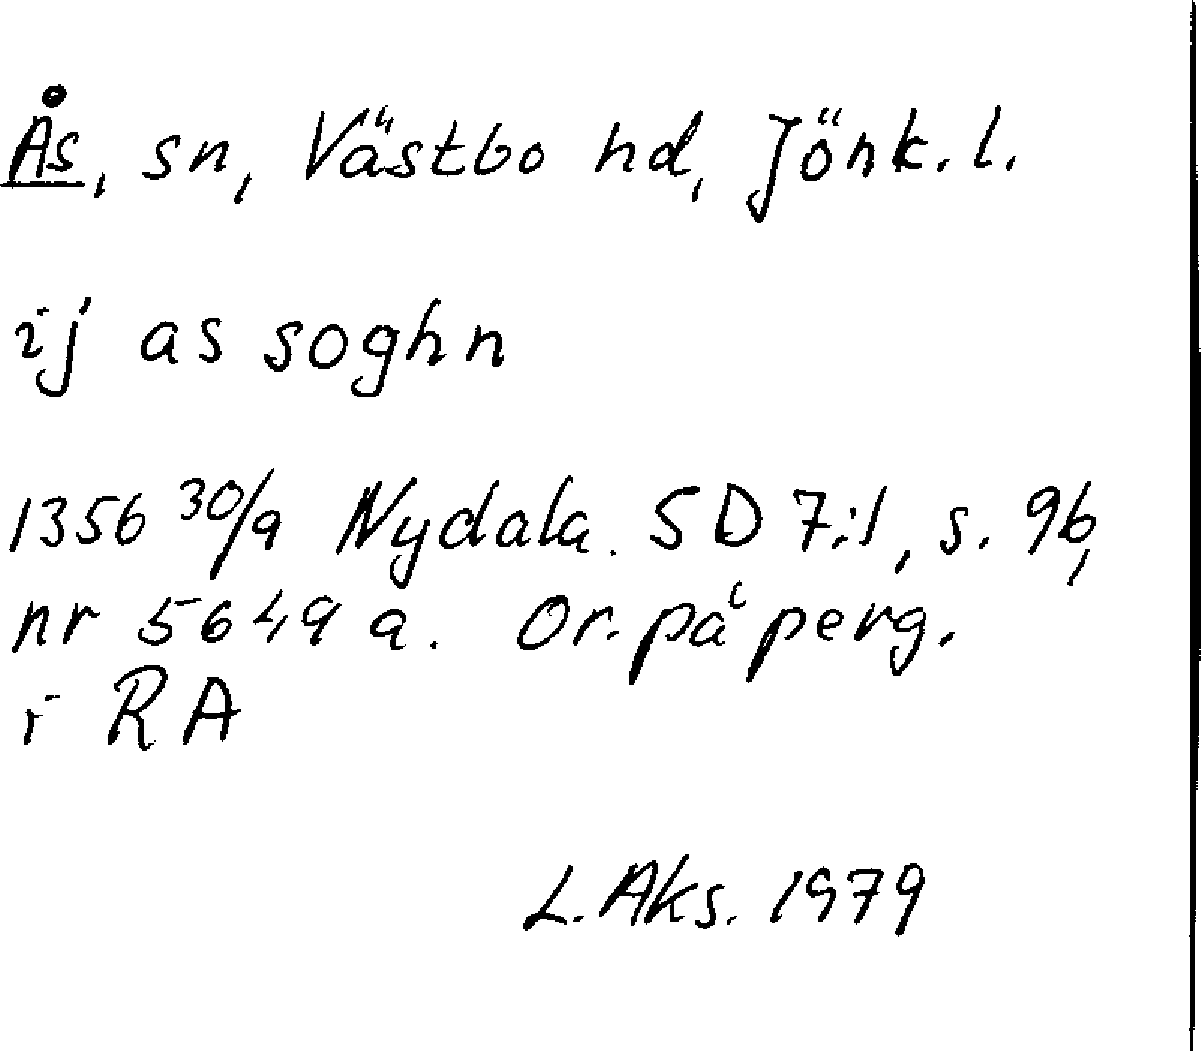 Ås, sn, Västbo hd, Jönk. l.
ij as soghn
1356 30/9 Nydala. SD 7:1, s. 96,
nr 5649 a. Or. på perg.
i RA
L. Aks. 1979